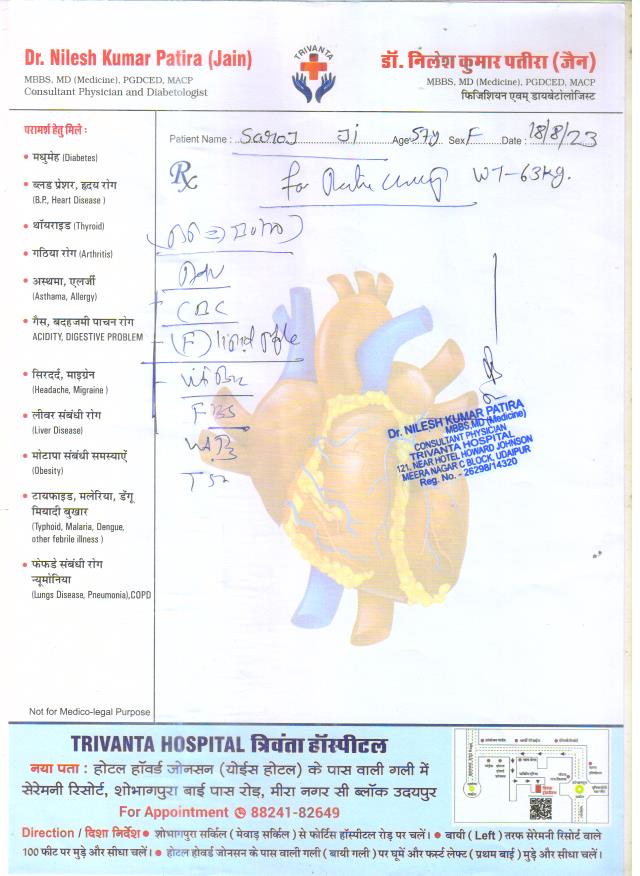 Dr. Nilesh Kumar Patira (Jain)
MBBS, MD (Medicine), PGDCED, MACP
Consultant Physician and Diabetologist
TRIVANTA
डॉ. निलेश कुमार पतीरा (जैन)
MBBS, MD (Medicine), PGDCED, MACP
फिजिशियन एवम् डायबेटोलोजिस्ट
परामर्श हेतु मिले :
• मधुमेह (Diabetes)
• ब्लड प्रेशर, हृदय रोग
(B.P., Heart Disease )
• थॉयराइड (Thyroid)
• गठिया रोग (Arthritis)
• अस्थमा, एलर्जी
(Asthama, Allergy)
• गैस, बदहजमी पाचन रोग
ACIDITY, DIGESTIVE PROBLEM
• सिरदर्द, माइग्रेन
(Headache, Migraine )
• लीवर संबंधी रोग
(Liver Disease)
• मोटापा संबंधी समस्याएँ
(Obesity)
• टायफाइड, मलेरिया, डेंगू
मियादी बुखार
(Typhoid, Malaria, Dengue,
other febrile illness )
• फेफडे संबंधी रोग
न्यूमोनिया
(Lungs Disease, Pneumonia),COPD
Not for Medico-legal Purpose
Patient Name : Saroj Ji Age 57y Sex F Date : 18/8/23
Rx
for WT-63kg.
Adv
CBC
(F) lipid profile
Vit B12
FBS
Vit D3
TSH
Dr. NILESH KUMAR PATIRA
MBBS,MD (Medicine)
CONSULTANT PHYSICIAN
TRIVANTA HOSPITAL
121, NEAR HOTEL HOWARD JOHNSON
MEERA NAGAR C BLOCK, UDAIPUR
Reg. No. - 26298/14320
TRIVANTA HOSPITAL त्रिवंता हॉस्पीटल
नया पता : होटल हॉवर्ड जोनसन (योईस होटल) के पास वाली गली में
सेरेमनी रिसोर्ट, शोभागपुरा बाई पास रोड़, मीरा नगर सी ब्लॉक उदयपुर
For Appointment 88241-82649
Direction / दिशा निर्देश • शोभागपुरा सर्किल ( मेवाड़ सर्किल ) से फोर्टिस हॉस्पीटल रोड़ पर चलें। • बायी ( Left ) तरफ सेरेमनी रिसोर्ट वाले
100 फीट पर मुड़े और सीधा चलें। • होटल होवर्ड जोनसन के पास वाली गली ( बायी गली ) पर घूमें और फर्स्ट लेफ्ट ( प्रथम बाई ) मुड़े और सीधा चलें।